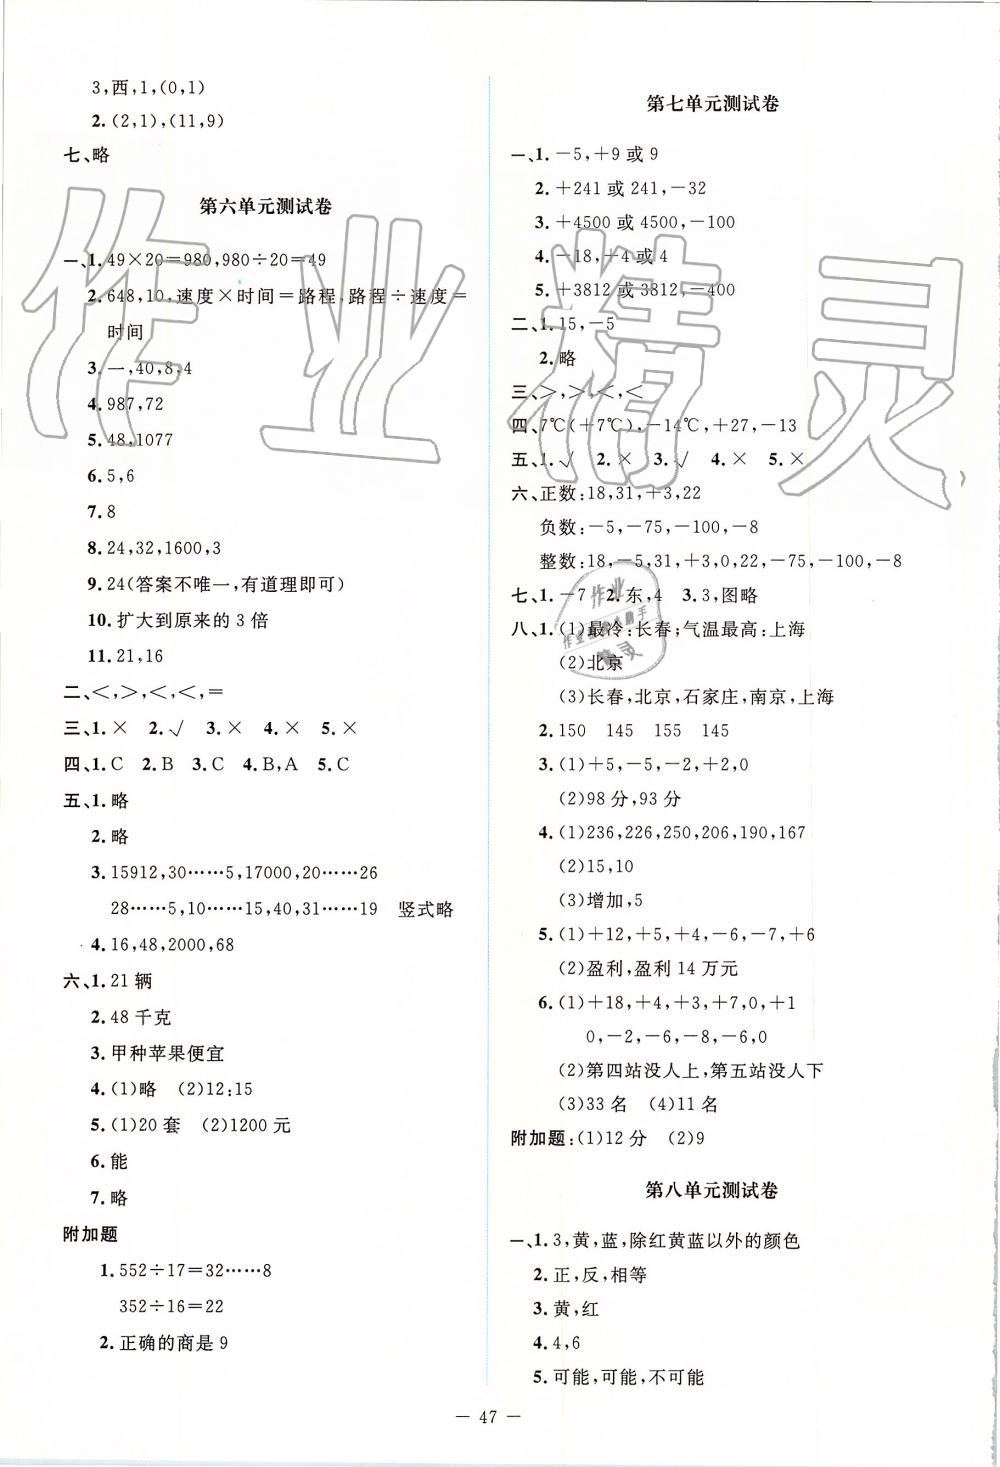 3,西,1,(0,1)
2.(2,1),(11,9)
七、略
第六单元测试卷
一、1.49×20=980,980÷20=49
2.648,10,速度×时间=路程,路程÷速度=
时间
3.一,40,8,4
4.987,72
5.48,1077
6.5,6
7.8
8.24,32,1600,3
9.24(答案不唯一,有道理即可)
10.扩大到原来的3倍
11.21,16
二、<,>,<,<,=
三、1.× 2.√ 3.× 4.× 5.×
四、1.C 2.B 3.C 4.B,A 5.C
五、1.略
2.略
3.15912,30……5,17000,20……26
28……5,10……15,40,31……19 竖式略
4.16,48,2000,68
六、1.21辆
2.48千克
3.甲种苹果便宜
4.(1)略 (2)12:15
5.(1)20套 (2)1200元
6.能
7.略
附加题
1.552÷17=32……8
352÷16=22
2.正确的商是9
第七单元测试卷
一、1.-5,+9或9
2.+241或241,-32
3.+4500或4500,-100
4.-18,+4或4
5.+3812或3812,-400
二、1.15,-5
2.略
三、>,>,<,<
四、7℃(+7℃),-14℃,+27,-13
五、1.√ 2.× 3.√ 4.× 5.×
六、正数:18,31,+3,22
负数:-5,-75,-100,-8
整数:18,-5,31,+3,0,22,-75,-100,-8
七、1.-7 2.东,4 3.3,图略
八、1.(1)最冷:长春;气温最高:上海
(2)北京
(3)长春,北京,石家庄,南京,上海
2.150 145 155 145
3.(1)+5,-5,-2,+2,0
(2)98分,93分
4.(1)236,226,250,206,190,167
(2)15,10
(3)增加,5
5.(1)+12,+5,+4,-6,-7,+6
(2)盈利,盈利14万元
6.(1)+18,+4,+3,+7,0,+1
0,-2,-6,-8,-6,0
(2)第四站没人上,第五站没人下
(3)33名 (4)11名
附加题:(1)12分 (2)9
第八单元测试卷
一、1.3,黄,蓝,除红黄蓝以外的颜色
2.正,反,相等
3.黄,红
4.4,6
5.可能,可能,不可能
— 47 —
作业精灵